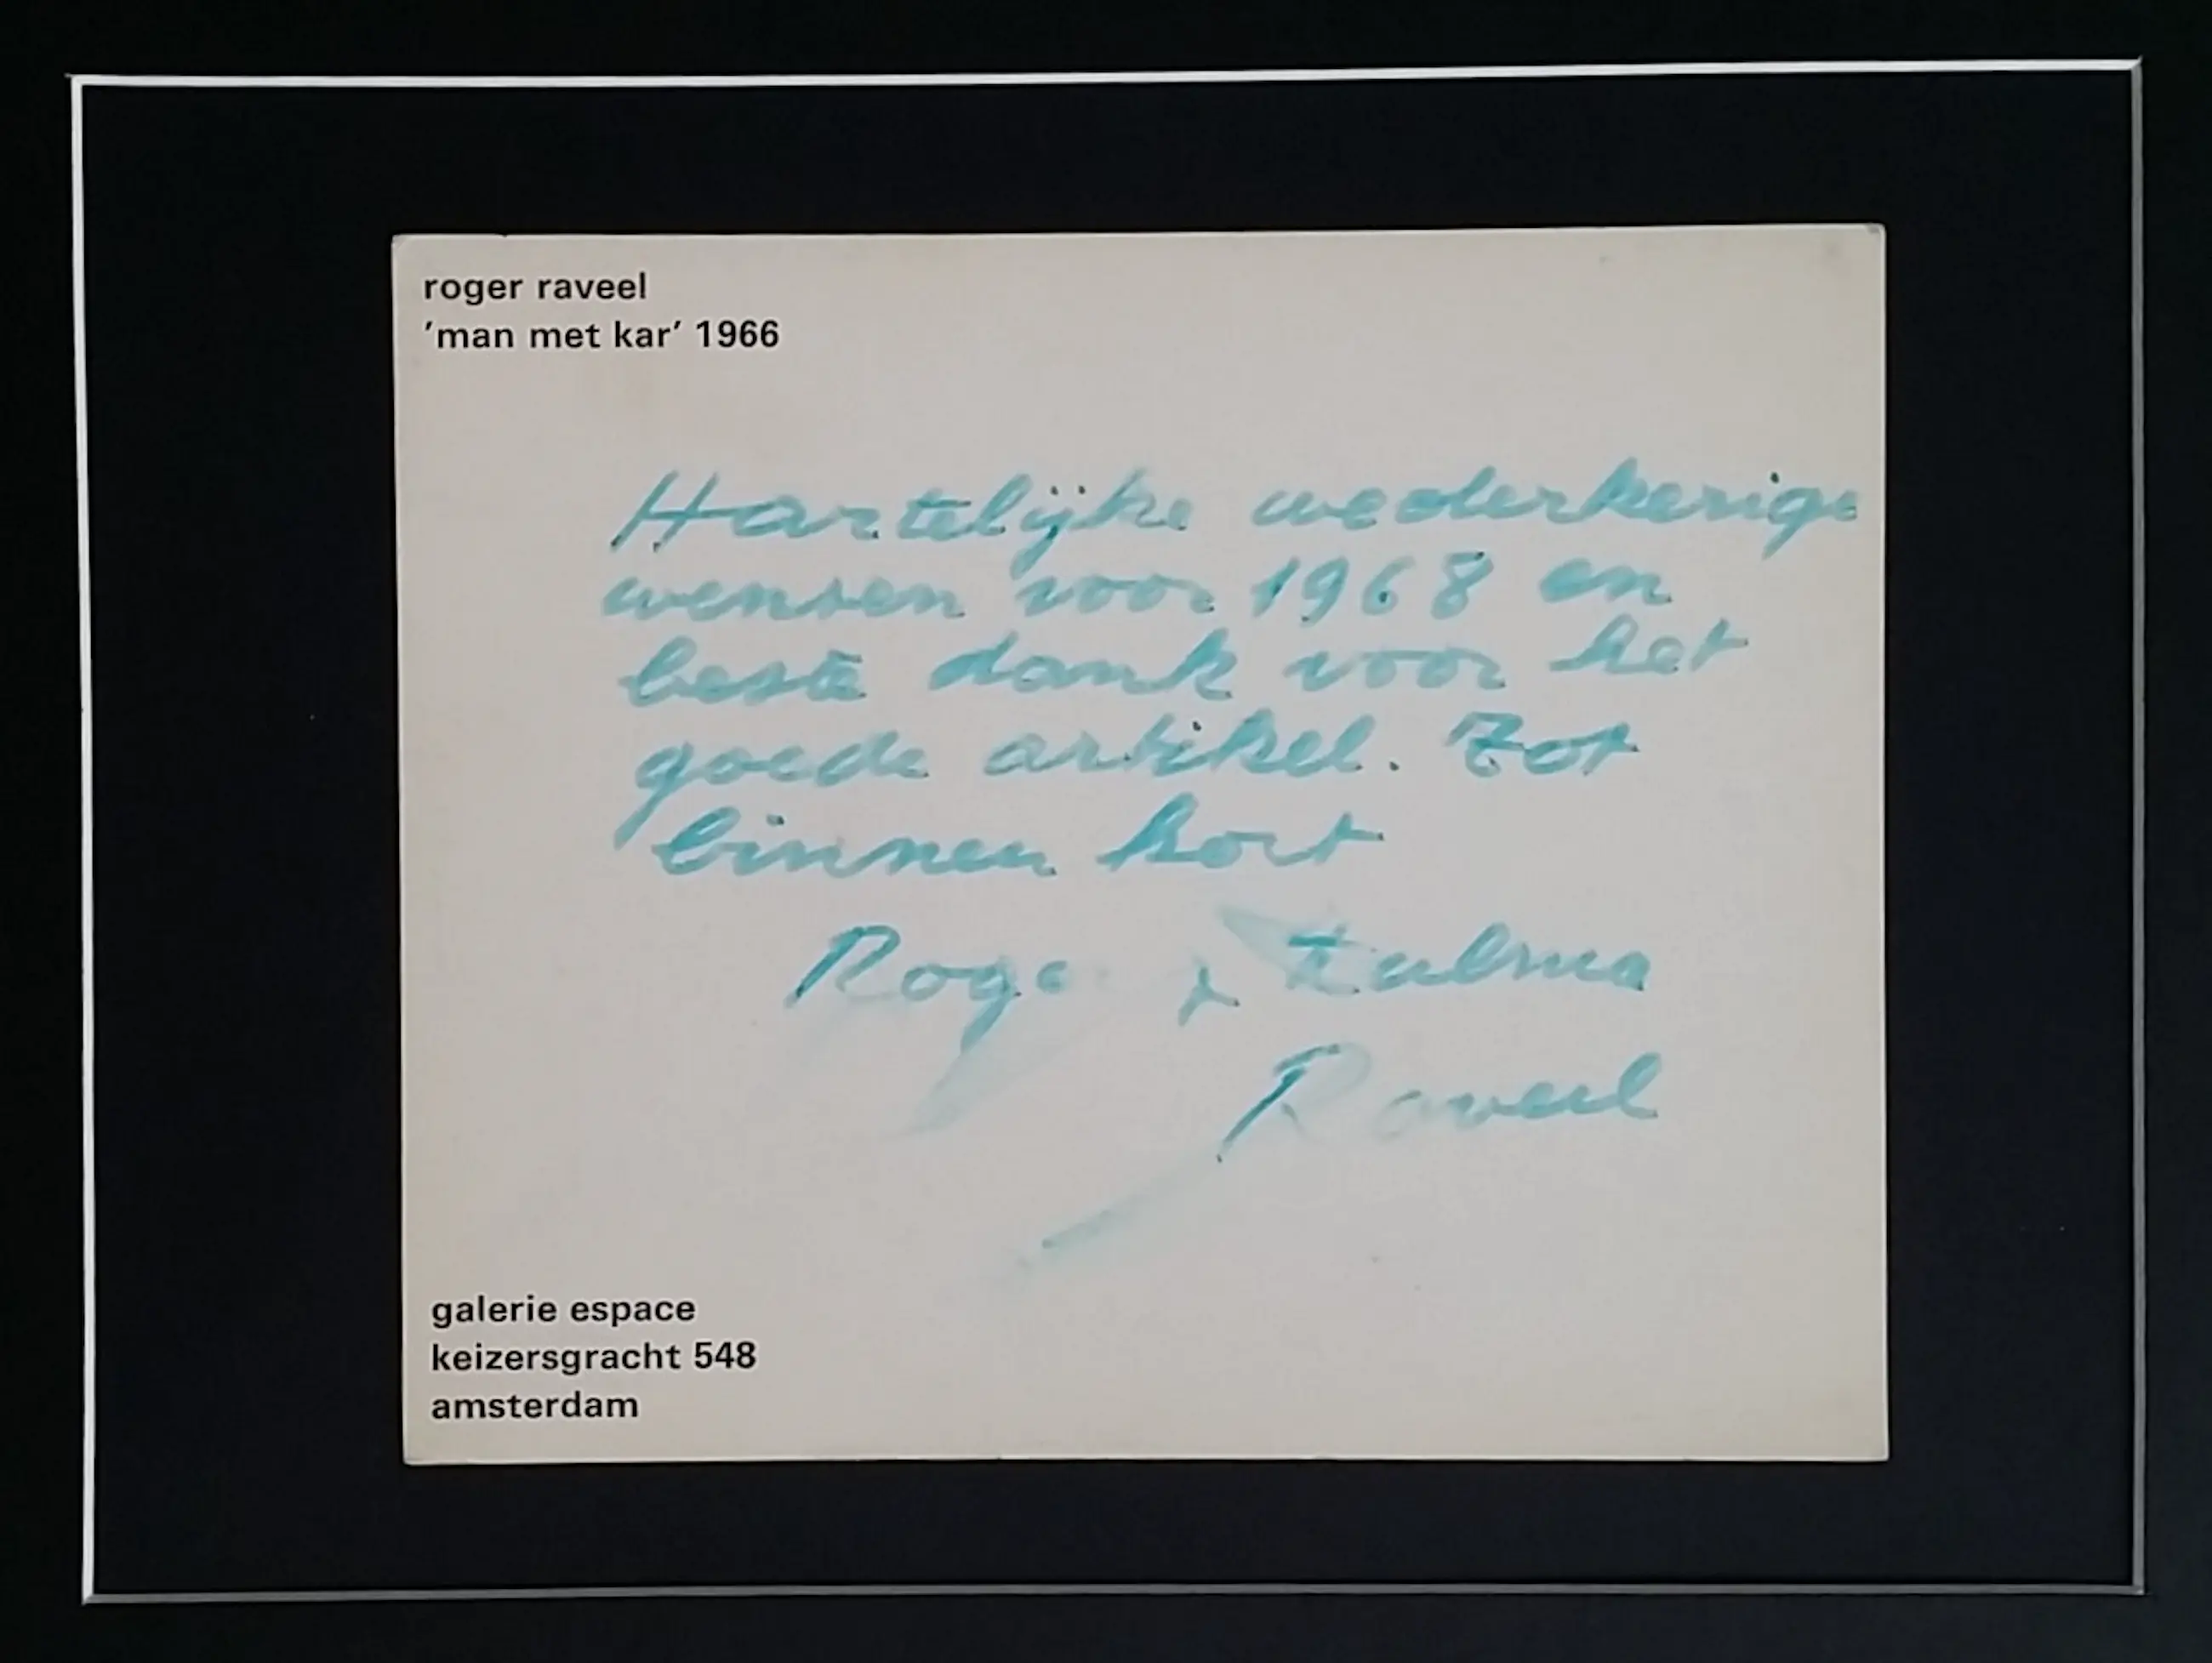 roger raveel
'man met kar' 1966
Hartelijke wederkerige
wensen voor 1968 en
beste dank voor het
goede artikel. Tot
binnen kort
Roger & Zulma
Raveel
galerie espace
keizersgracht 548
amsterdam